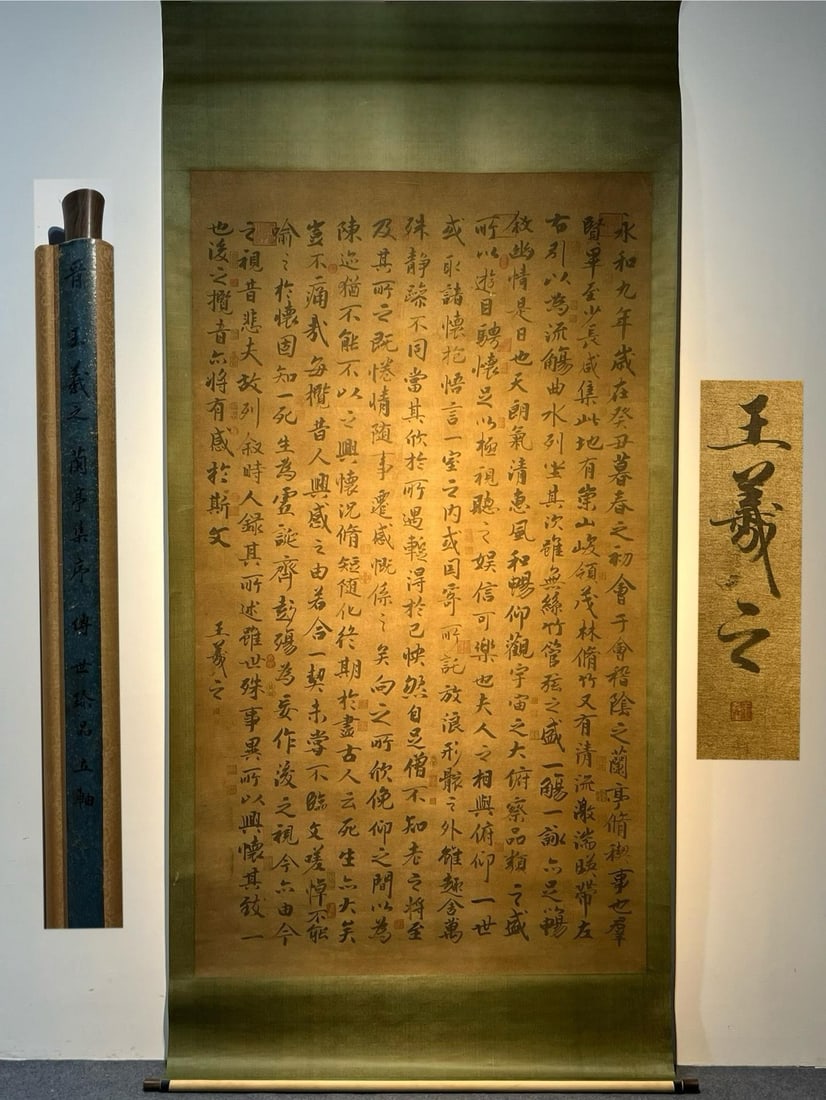 永和九年歲在癸丑暮春之初會于會稽陰之蘭亭脩禊事也羣
賢畢至少長咸集此地有崇山峻領茂林脩竹又有清流激湍暎帶左
右引以為流觴曲水列坐其次雖無絲竹管弦之盛一觴一詠亦足以暢
敘幽情是日也天朗氣清惠風和暢仰觀宇宙之大俯察品類之盛
所以遊目騁懷足以極視聽之娛信可樂也夫人之相與俯仰一世
或取諸懷抱悟言一室之內或因寄所託放浪形骸之外雖趣舍萬
殊靜躁不同當其欣於所遇暫得於己怏然自足僧不知老之將至
及其所之既惓情隨事遷感慨係之矣向之所欣俛仰之間以為
陳迹猶不能不以之興懷況脩短隨化終期於盡古人云死生亦大矣
豈不痛哉每攬昔人興感之由若合一契未嘗不臨文嗟悼不能
喻之於懷固知一死生為虛誕齊彭殤為妄作後之視今亦由今
之視昔悲夫故列敘時人錄其所述雖世殊事異所以興懷其致一
也後之攬者亦將有感於斯文
王羲之
晉 王羲之 蘭亭集序 傳世珍品立軸
王羲之